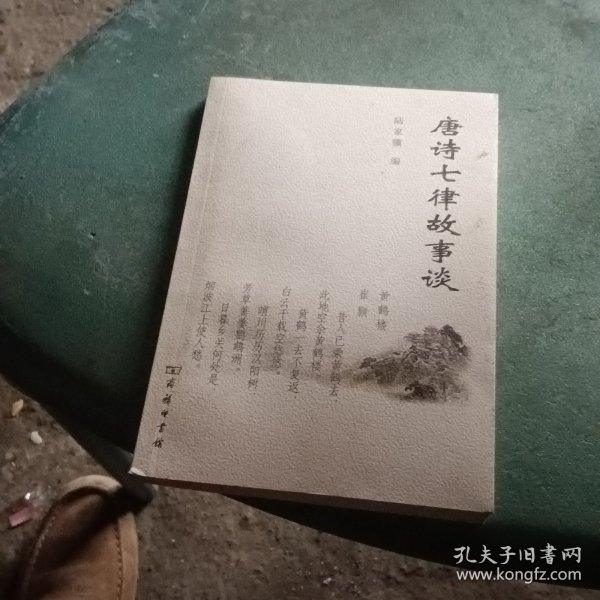 唐诗七律故事谈
陆家骥 编
黄鹤楼
崔颢
昔人已乘黄鹤去，
此地空余黄鹤楼。
黄鹤一去不复返，
白云千载空悠悠。
晴川历历汉阳树，
芳草萋萋鹦鹉洲。
日暮乡关何处是，
烟波江上使人愁。
商务印书馆
孔夫子旧书网
www.kongfz.com